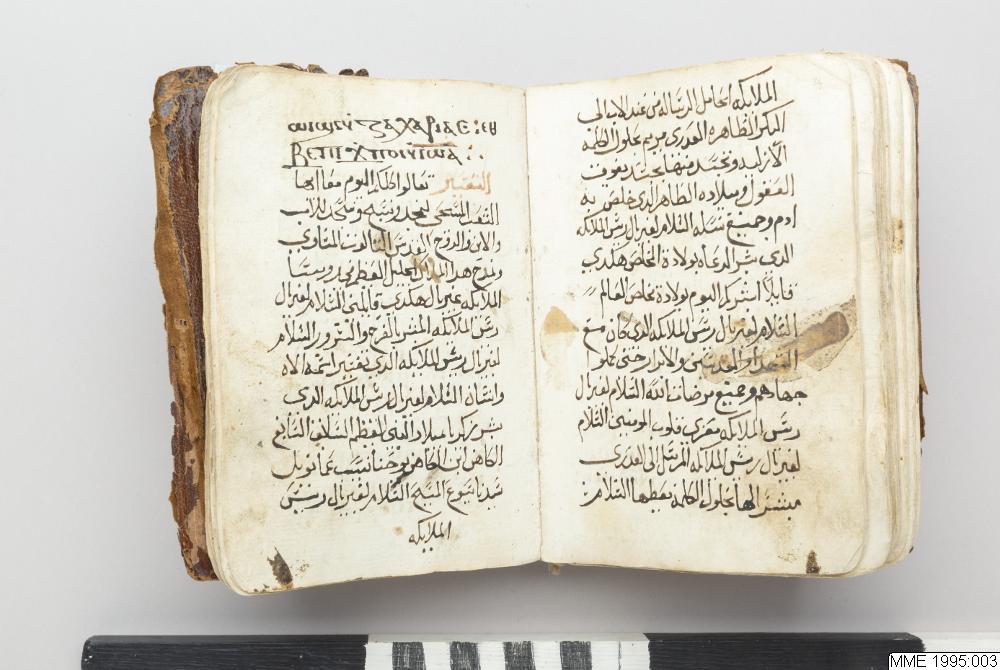 ⲍⲁⲭⲁⲣⲓⲁⲥ : ⲉⲑ
ⲃⲉ
التفسير تعالوا كلكم اليوم معا ايها
الشعب المسيحى لنمجد ونسبح للاب
والابن والروح القدس الثالوت المتساوي
ونمدح هدا الملاك الجليل العظيم فى رووسا
الملايكه غبريال هكدى قايلين السلام لغبريال
رييس الملايكه المبشر بالفرح والسرور السلام
لغبريال رييس الملايكه الدي تفسير اسمه الاه
وانسان السلام لغبريال رييس الملايكه الدى
بشر زكريا بميلاد النبى العظيم السابق الصابغ
الكاهن ابن الكاهن يوحنا نسيب عمانويل
سيدنا يسوع المسيح السلام لغبريال رييس
الملايكه
الملايكه الحامل الرساله من عند الاب الى
البكر الطاهره العدرى مريم بحلول الكلمه
الازليه وتجسد منها بجسد يفوق
العقول وميلاده الطاهر الدى خلص به
ادم وجميع نسله السلام لغبريال رييس الملايكه
الدى بشر الرعاه بولادة المخلص هكدي
قايلا ابشركم اليوم بولادة مخلص العالم
السلام لغبريال رييس الملايكه الدى كان مع
الشهدا والقديسين والابرار حتى كملوا
جهادهم وجميع مرضات الله السلام لغبريال
رييس الملايكه معزي قلوب المومنين السلام
لغبريال رييس الملايكه المرسل الى العدري
مبشرا لها بحلول الكلمه يعطها السلام :
MME 1995:003